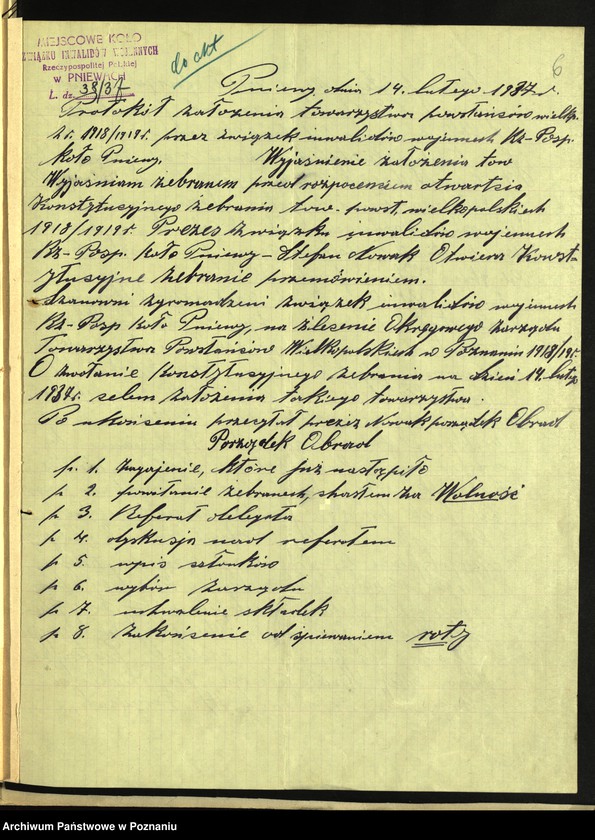 MIEJSCOWE KOŁO
ZWIĄZKU INWALIDÓW WOJENNYCH
Rzeczypospolitej Polskiej
w PNIEWACH
L. dz. 38/37
do akt
6
Pniewy, dnia 14. lutego 1937 r.
Protokół założenia towarzystwa powstańców wielkp.
z r. 1918/1919 r. przez związek inwalidów wojennych Rz-Posp.
koło Pniewy. Wyjaśnienie założenia tow
Wyjaśniam zebranem przed rozpoceniem otwartsia
Konstytucyjnego zebrania tow. powst. wielkopolskich
1918/1919 r. Prezes związku inwalidów wojennych
Rz-Posp. koło Pniewy - Stefan Nowak Otwiera Konst-
ytusyjne zebranie przemówieniem.
Szanowni zgromadzeni związek inwalidów wojennych
Rz-Posp koło Pniewy, na zlesenie Okręgowego zarządu
Towarzystwa Powstańców Wielkopolskich w Poznaniu 1918/19 r.
O zwołanie konstytusyjnego zebrania na dzień 14. lutego
1937 r. selem założenia takiego towarzystwa.
Po ukońseniu przecytał prezez Nowak porządek Obrad
Porządek Obrad
p. 1. zagajenie, które już nastąpiło
p 2. powitanie zebranech, hasłem za Wolność
p 3. Referat delegata
p 4. dyskusja nad referatem
p 5. wpis szłonków
p 6. wybór zarządu
p 7. uchwalenie składek
p 8. zakońsenie od śpiewaniem roty
Archiwum Państwowe w Poznaniu